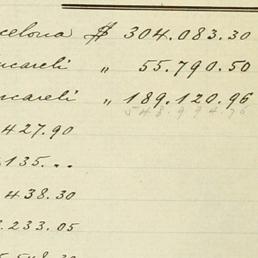 celona $ 304.083.30
ncareli " 55.790.50
ncareli " 189.120.96
548.994.76
427.90
135...
438.30
.233.05